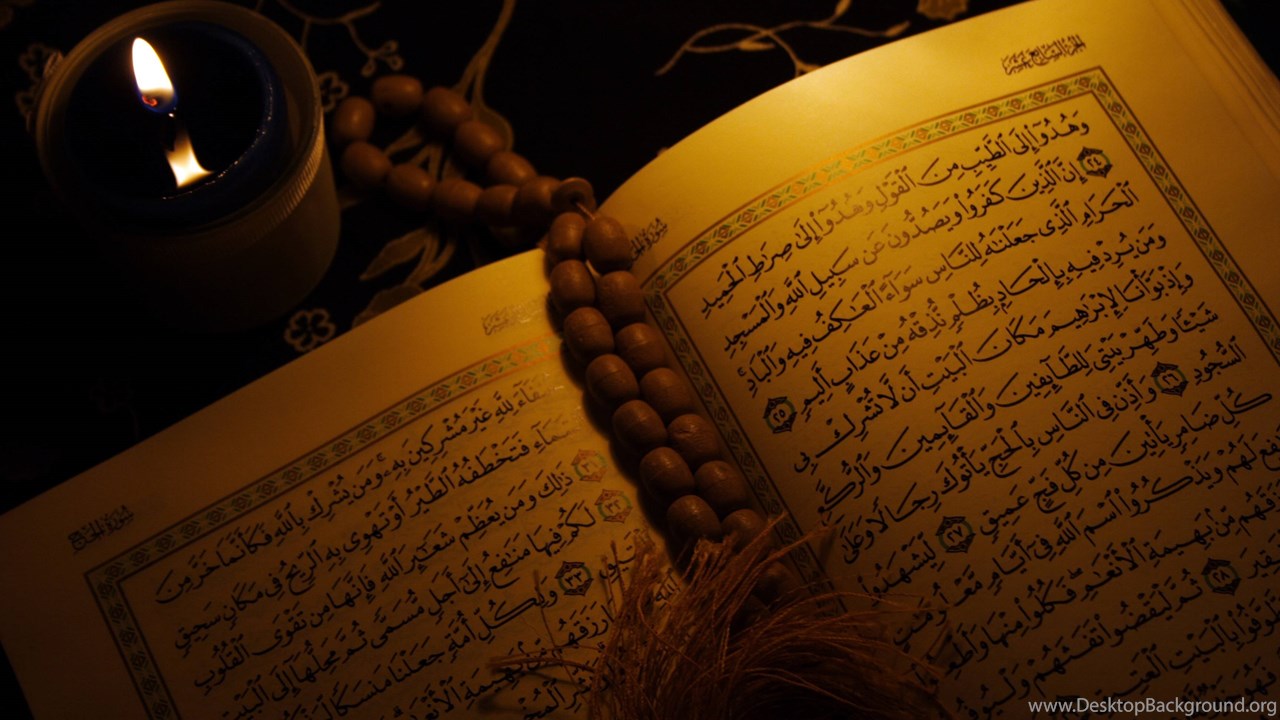 الجزء السابع عشر
وَهُدُوٓا۟ إِلَى ٱلطَّيِّبِ مِنَ ٱلْقَوْلِ وَهُدُوٓا۟ إِلَىٰ صِرَٰطِ ٱلْحَمِيدِ
٢٤ إِنَّ ٱلَّذِينَ كَفَرُوا۟ وَيَصُدُّونَ عَن سَبِيلِ ٱللَّهِ وَٱلْمَسْجِدِ
ٱلْحَرَامِ ٱلَّذِى جَعَلْنَٰهُ لِلنَّاسِ سَوَآءً ٱلْعَٰكِفُ فِيهِ وَٱلْبَادِ
وَمَن يُرِدْ فِيهِ بِإِلْحَادٍۭ بِظُلْمٍ نُّذِقْهُ مِنْ عَذَابٍ أَلِيمٍ ٢٥
وَإِذْ بَوَّأْنَا لِإِبْرَٰهِيمَ مَكَانَ ٱلْبَيْتِ أَن لَّا تُشْرِكْ بِى
شَيْـًٔا وَطَهِّرْ بَيْتِىَ لِلطَّآئِفِينَ وَٱلْقَآئِمِينَ وَٱلرُّكَّعِ
ٱلسُّجُودِ ٢٦ وَأَذِّن فِى ٱلنَّاسِ بِٱلْحَجِّ يَأْتُوكَ رِجَالًا وَعَلَىٰ
كُلِّ ضَامِرٍ يَأْتِينَ مِن كُلِّ فَجٍّ عَمِيقٍ ٢٧ لِّيَشْهَدُوا۟
لَهُمْ وَيَذْكُرُوا۟ ٱسْمَ ٱللَّهِ فِىٓ أَيَّامٍ
مِّنۢ بَهِيمَةِ ٱلْأَنْعَٰمِ فَكُلُوا۟ مِنْهَا
٢٨ ثُمَّ لْيَقْضُوا۟ تَفَثَهُمْ
بِٱلْبَيْتِ
سورة الحج
لِلَّهِ غَيْرَ مُشْرِكِينَ بِهِۦ وَمَن يُشْرِكْ بِٱللَّهِ فَكَأَنَّمَا خَرَّ مِنَ
فَتَخْطَفُهُ ٱلطَّيْرُ أَوْ تَهْوِى بِهِ ٱلرِّيحُ فِى مَكَانٍ سَحِيقٍ
٣١ ذَٰلِكَ وَمَن يُعَظِّمْ شَعَٰٓئِرَ ٱللَّهِ فَإِنَّهَا مِن تَقْوَى ٱلْقُلُوبِ
٣٢ لَكُمْ فِيهَا مَنَٰفِعُ إِلَىٰٓ أَجَلٍ مُّسَمًّى ثُمَّ مَحِلُّهَآ إِلَى ٱلْبَيْتِ
٣٣ وَلِكُلِّ أُمَّةٍ جَعَلْنَا مَنسَكًا
بَهِيمَةِ
www.DesktopBackground.org